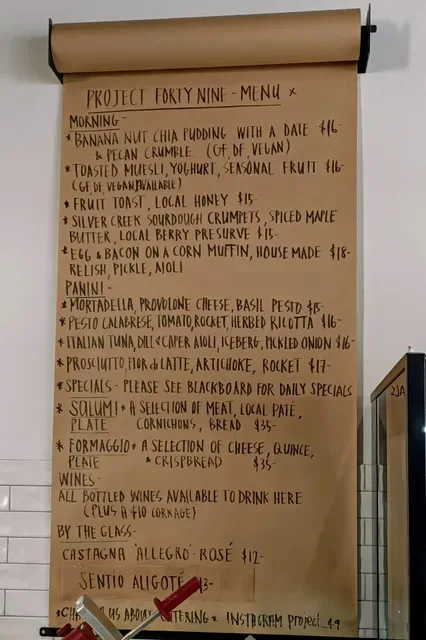 PROJECT FORTY NINE - MENU x
MORNING -
* BANANA NUT CHIA PUDDING WITH A DATE $16-
& PECAN CRUMBLE. (GF, DF, VEGAN)
* TOASTED MUESLI, YOGHURT, SEASONAL FRUIT $16-
(GF, DF, VEGAN AVAILABLE)
* FRUIT TOAST, LOCAL HONEY $15-
* SILVER CREEK SOURDOUGH CRUMPETS, SPICED MAPLE
BUTTER, LOCAL BERRY PRESERVE $15-
* EGG & BACON ON A CORN MUFFIN, HOUSE MADE $18-
RELISH, PICKLE, AIOLI
PANINI -
* MORTADELLA, PROVOLONE CHEESE, BASIL PESTO $15-
* PESTO CALABRESE, TOMATO, ROCKET, HERBED RICOTTA $16-
* ITALIAN TUNA, DILL & CAPER AIOLI, ICEBERG, PICKLED ONION $16-
* PROSCIUTTO, FIOR di LATTE, ARTICHOKE, ROCKET $17-
* SPECIALS - PLEASE SEE BLACKBOARD FOR DAILY SPECIALS
* SALUMI * A SELECTION OF MEAT, LOCAL PATÉ,
PLATE CORNICHONS, BREAD $35-
* FORMAGGIO * A SELECTION OF CHEESE, QUINCE,
PLATE & CRISPBREAD $35-
WINES -
ALL BOTTLED WINES AVAILABLE TO DRINK HERE
(PLUS A $10 CORKAGE)
BY THE GLASS -
CASTAGNA 'ALLEGRO' - ROSÉ $12-
SENTIO ALIGOTÉ 3-
US ABOUT CATERING * INSTAGRAM project_49